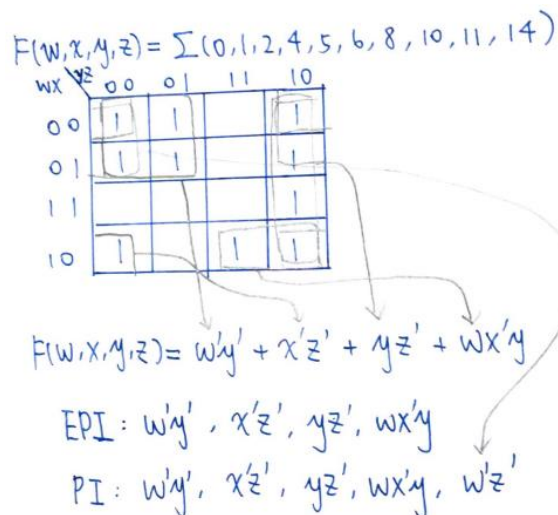 F(w,x,y,z)= Σ(0,1,2,4,5,6,8,10,11,14)
wx\yz 00 01 11 10
00 1 1 1
01 1 1 1
11 1
10 1 1 1
F(w,x,y,z)= w'y' + x'z' + yz' + wx'y
EPI: w'y', x'z', yz', wx'y
PI: w'y', x'z', yz', wx'y, w'z'